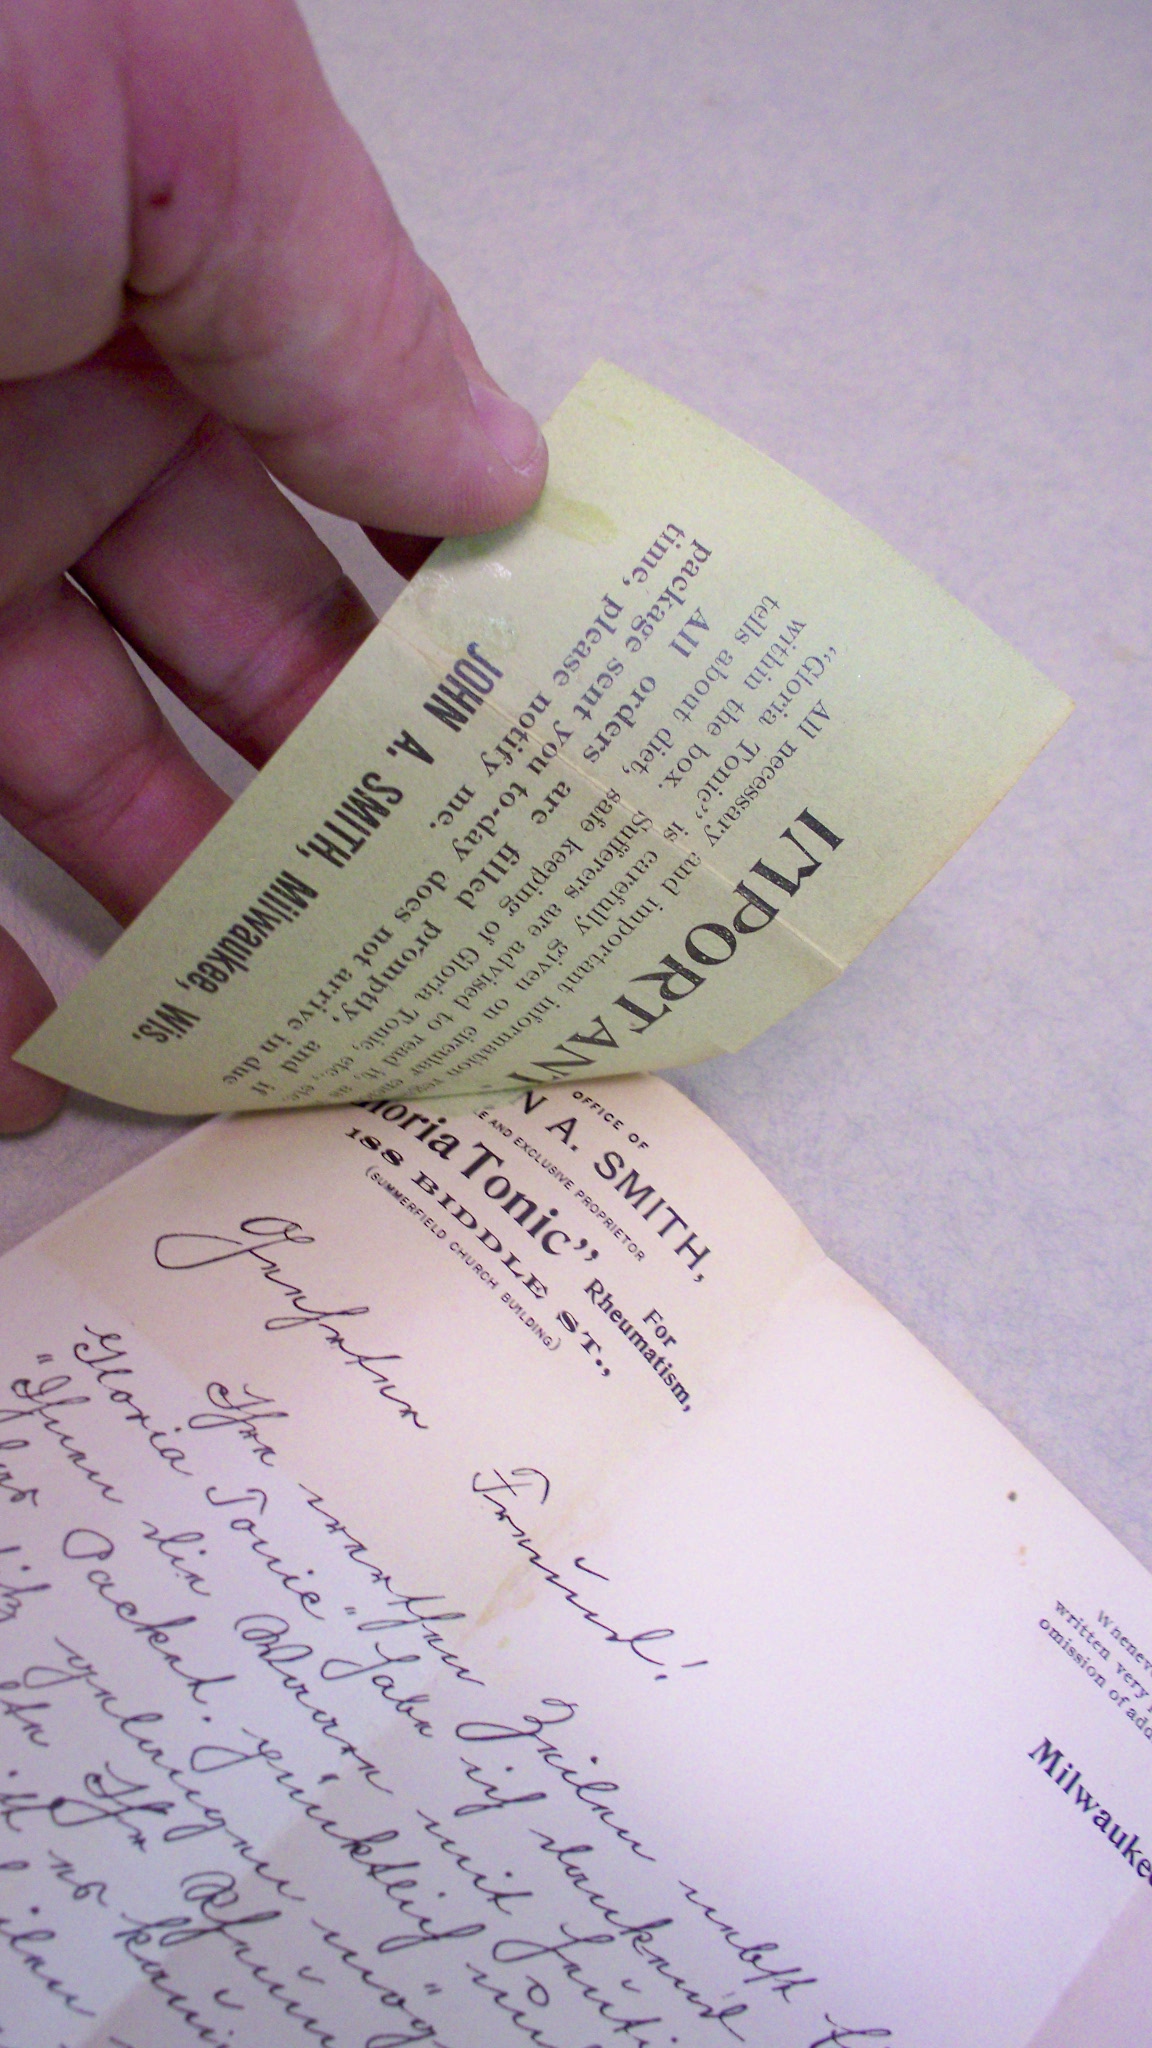 IMPORTANT
All necessary and important information
"Gloria Tonic" is carefully given on circular
within the box. Sufferers are advised to read it, as
tells about diet, safe keeping of Gloria Tonic, etc., etc.
All orders are filled promptly, and if
package sent you to-day does not arrive in due
time, please notify me.
JOHN A. SMITH, Milwaukee, Wis.
OFFICE OF
N A. SMITH,
E AND EXCLUSIVE PROPRIETOR
loria Tonic" For Rheumatism,
188 BIDDLE ST.,
(SUMMERFIELD CHURCH BUILDING)
Wheneve
written very
omission of add
Milwaukee
Geehrter Freund!
Ihre werthen Zeilen nebst
"Gloria Tonic" habe ich dankend
Ihnen die Waare mit heuti
Packet. pünktlich
gelangen mög
Ihr Rheum
es kau